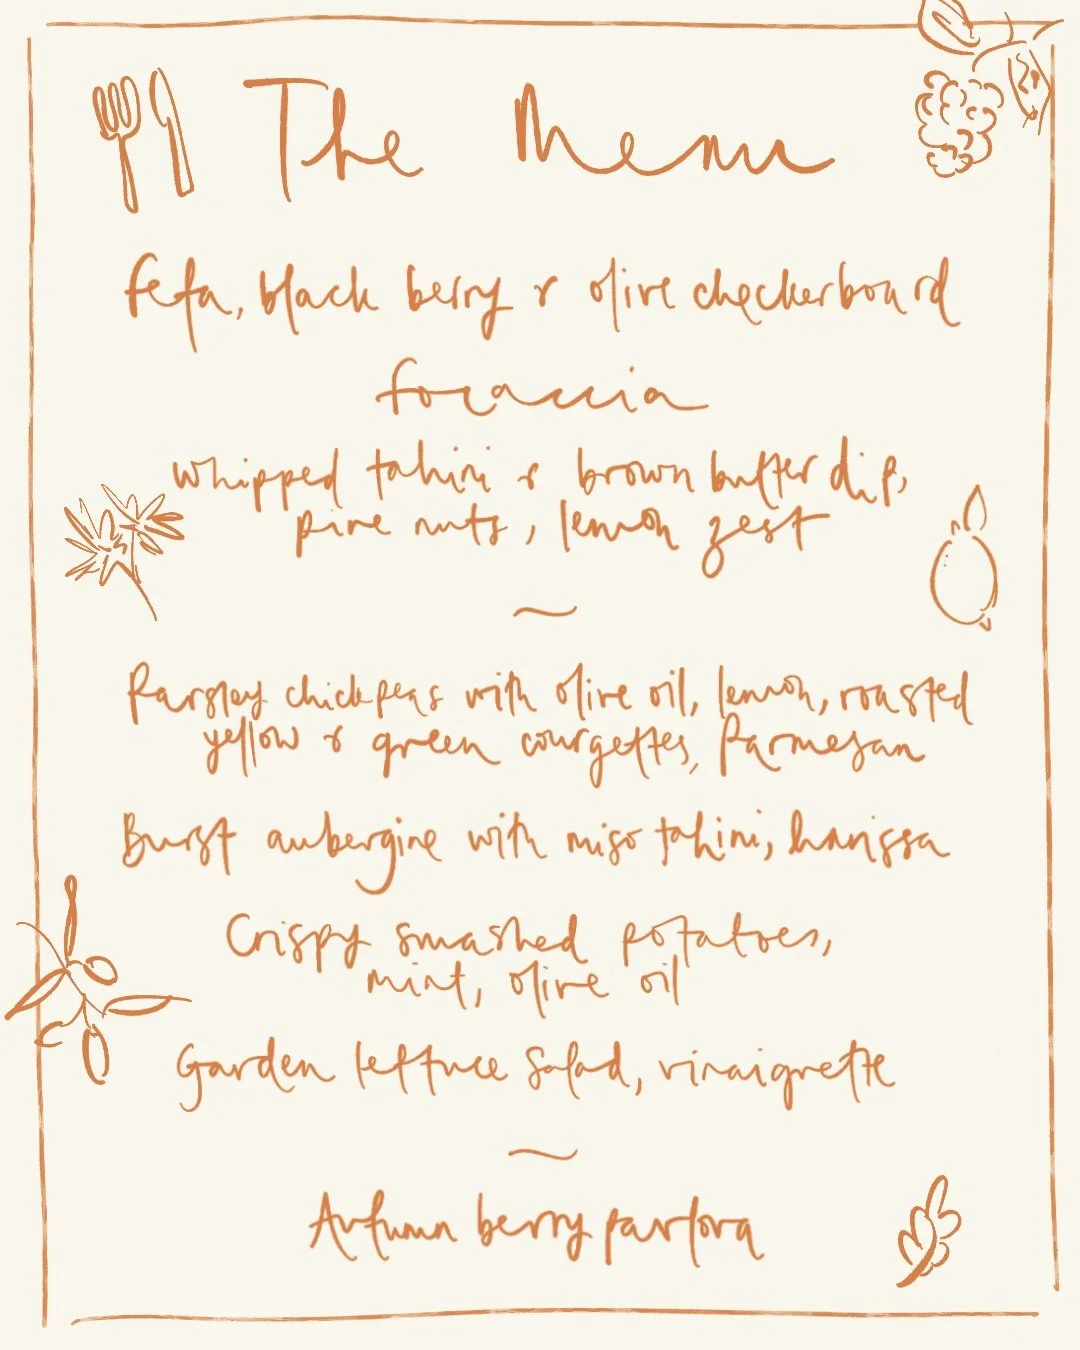 The Menu
Feta, blackberry & olive checkerboard
focaccia
whipped tahini & brown butter dip,
pine nuts, lemon zest
~
Parsley chickpeas with olive oil, lemon, roasted
yellow & green courgettes, Parmesan
Burst aubergine with miso tahini, harissa
Crispy smashed potatoes,
mint, olive oil
Garden lettuce salad, vinaigrette
~
Autumn berry pavlova